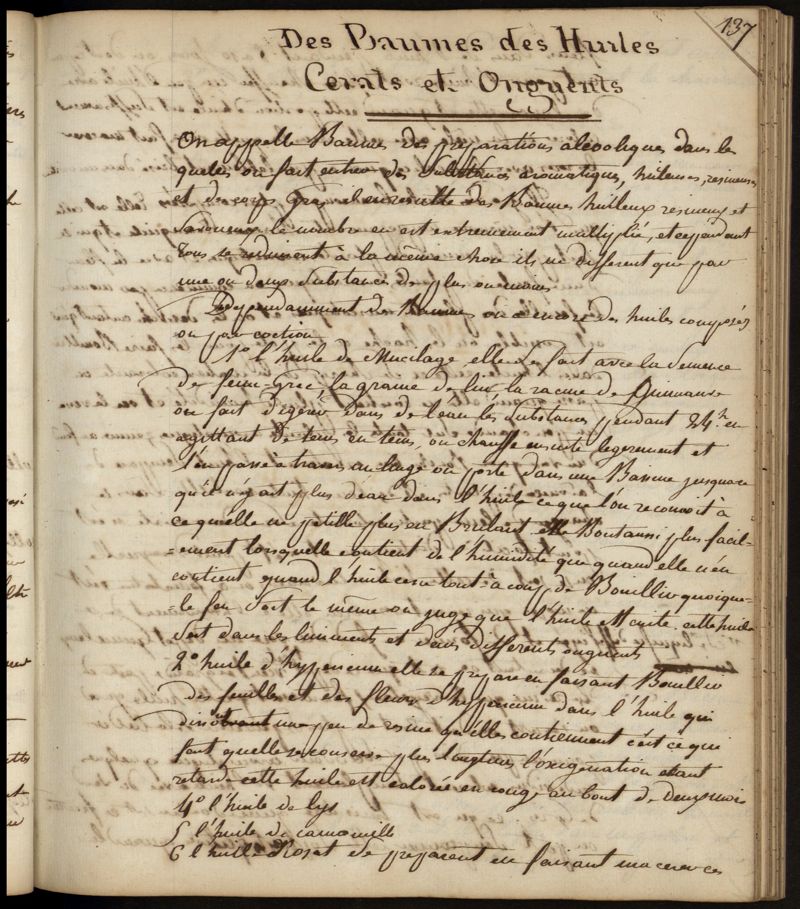 137
Des Baumes des Huiles
Cerats et Onguents
On appelle Baumes des preparations alcooliques dans les
quelles on fait entrer des substances aromatiques, huileuses, resineuses
et des corps gras, il en resulte des Baumes huileux resineux et
savoneux le nombre en est extremement multiplié, et cependant
tous se reduisent à la même chose ils ne different que par
une ou deux substances de plus ou moins
Independamment des Baumes on a encore des huiles composés
ou par coction
1° l'huile de Mucilage, elle se fait avec la semence
de fenu-Grec, la graine de lin, la racine de Guimauve
on fait digerer dans de l'eau les substances pendant 24 h en
agittant de tems en tems, on chauffe ensuite legerement et
l'on passe a travers un linge on porte dans une Bassine jusquace
qu'il n'y ait plus d'eau dans l'huile ce que l'on reconnoit à
ce quelle ne petille plus en Brulant elle Bout aussi plus facil-
=ement lorsquelle contient de l'humidité que quand elle n'en
contient quand l'huile cesse tout à coup de Bouillir quoique=
=le feu soit le même on juge que l'huile est cuite. cette huile
sert dans les liniments et dans differents onguents
2° huile d'hypericum elle se prepare en faisant Bouillir
des feuilles et des fleurs d'hypericum dans l'huile qui
dissolvant un peu de resine qu'elles contiennent c'est ce qui
fait quelle se conserve plus longtems l'oxigenation etant
retardé cette huile est colorée en rouge au bout de deux mois
4° l'huile de lys
5 l'huile de camomille
6 l'huile Rosat se preparent en faisant macerer ces